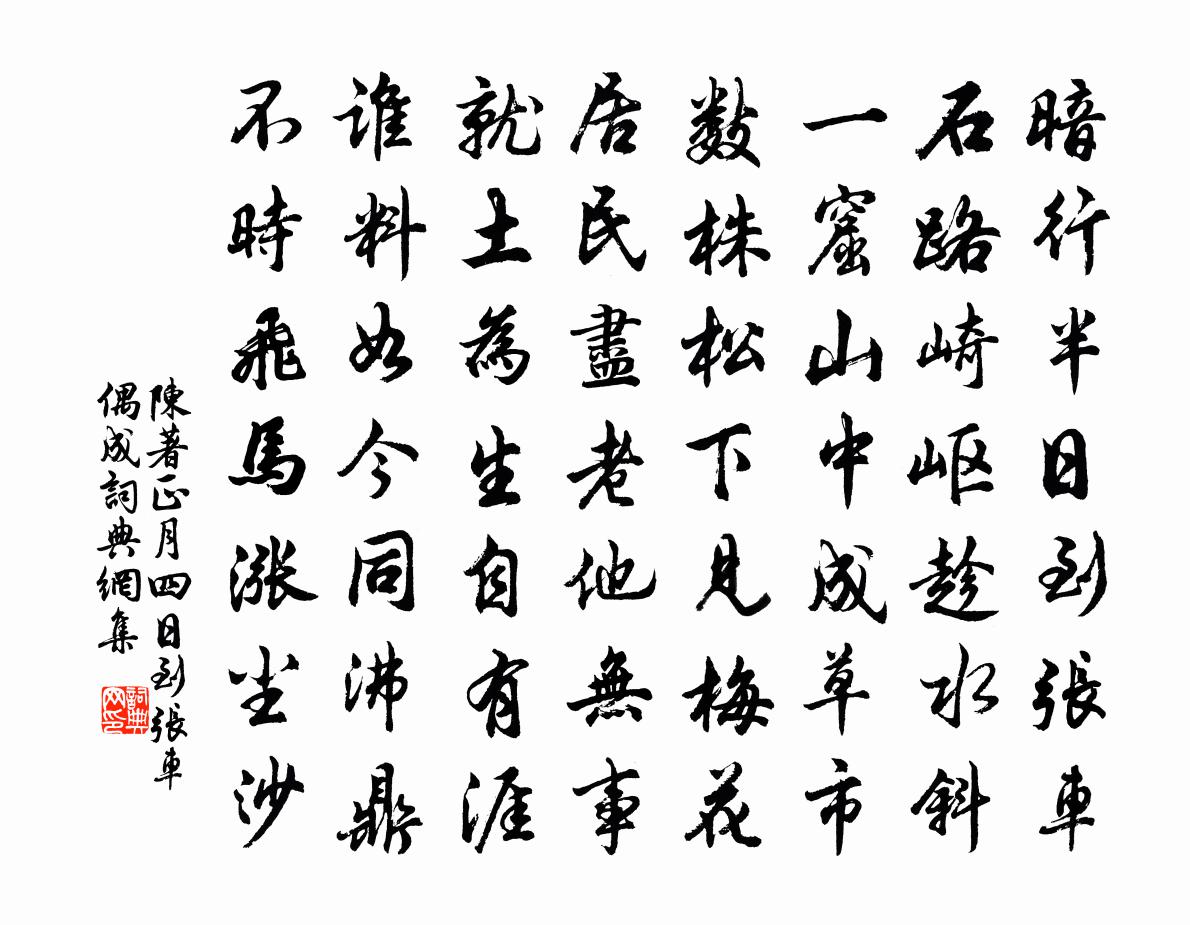 暗行半日到張車
石路崎岖趁水斜
一窟山中成草市
數株松下見梅花
居民盡老他無事
就土為生自有涯
谁料如今同沸鼎
不時飛馬漲尘沙
陳著正月四日到張車
偶成詞典網集
詞典
网印